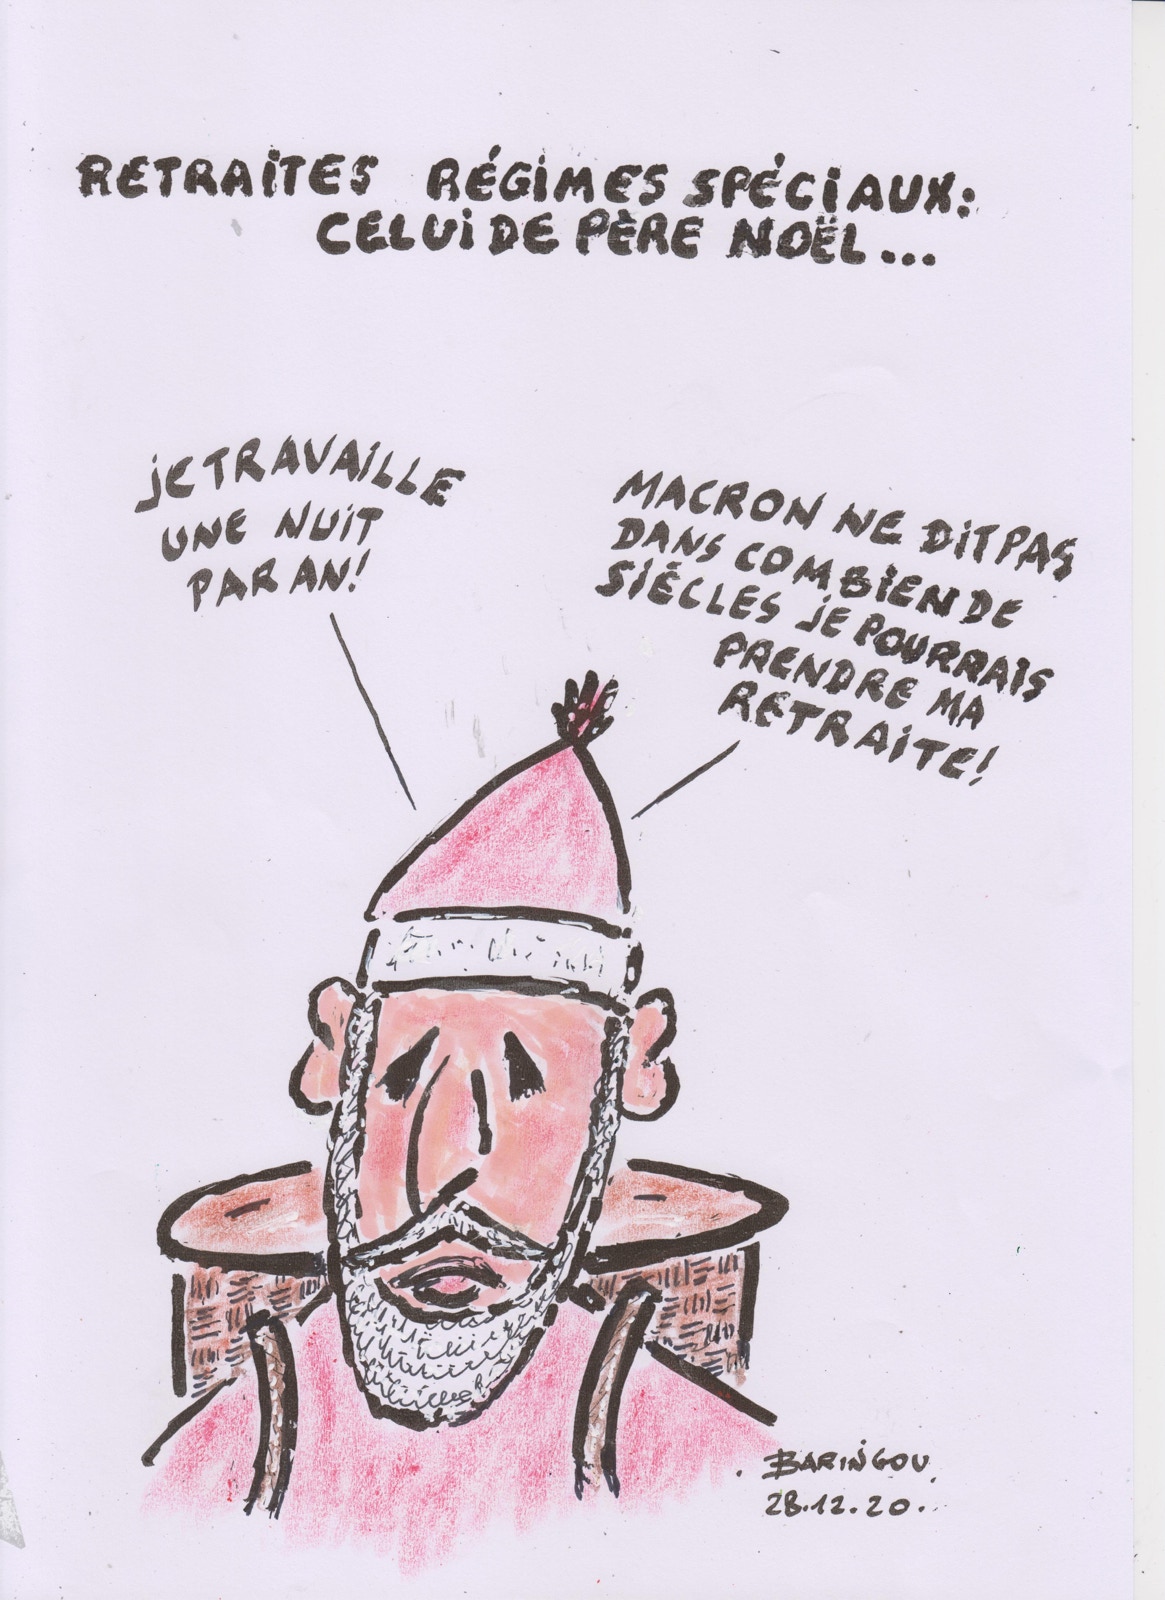 RETRAITES RÉGIMES SPÉCIAUX:
CELUI DE PÈRE NOËL...
JE TRAVAILLE
UNE NUIT
PAR AN!
MACRON NE DIT PAS
DANS COMBIEN DE
SIÈCLES JE POURRAIS
PRENDRE MA
RETRAITE!
BARINGOU
28.12.20.